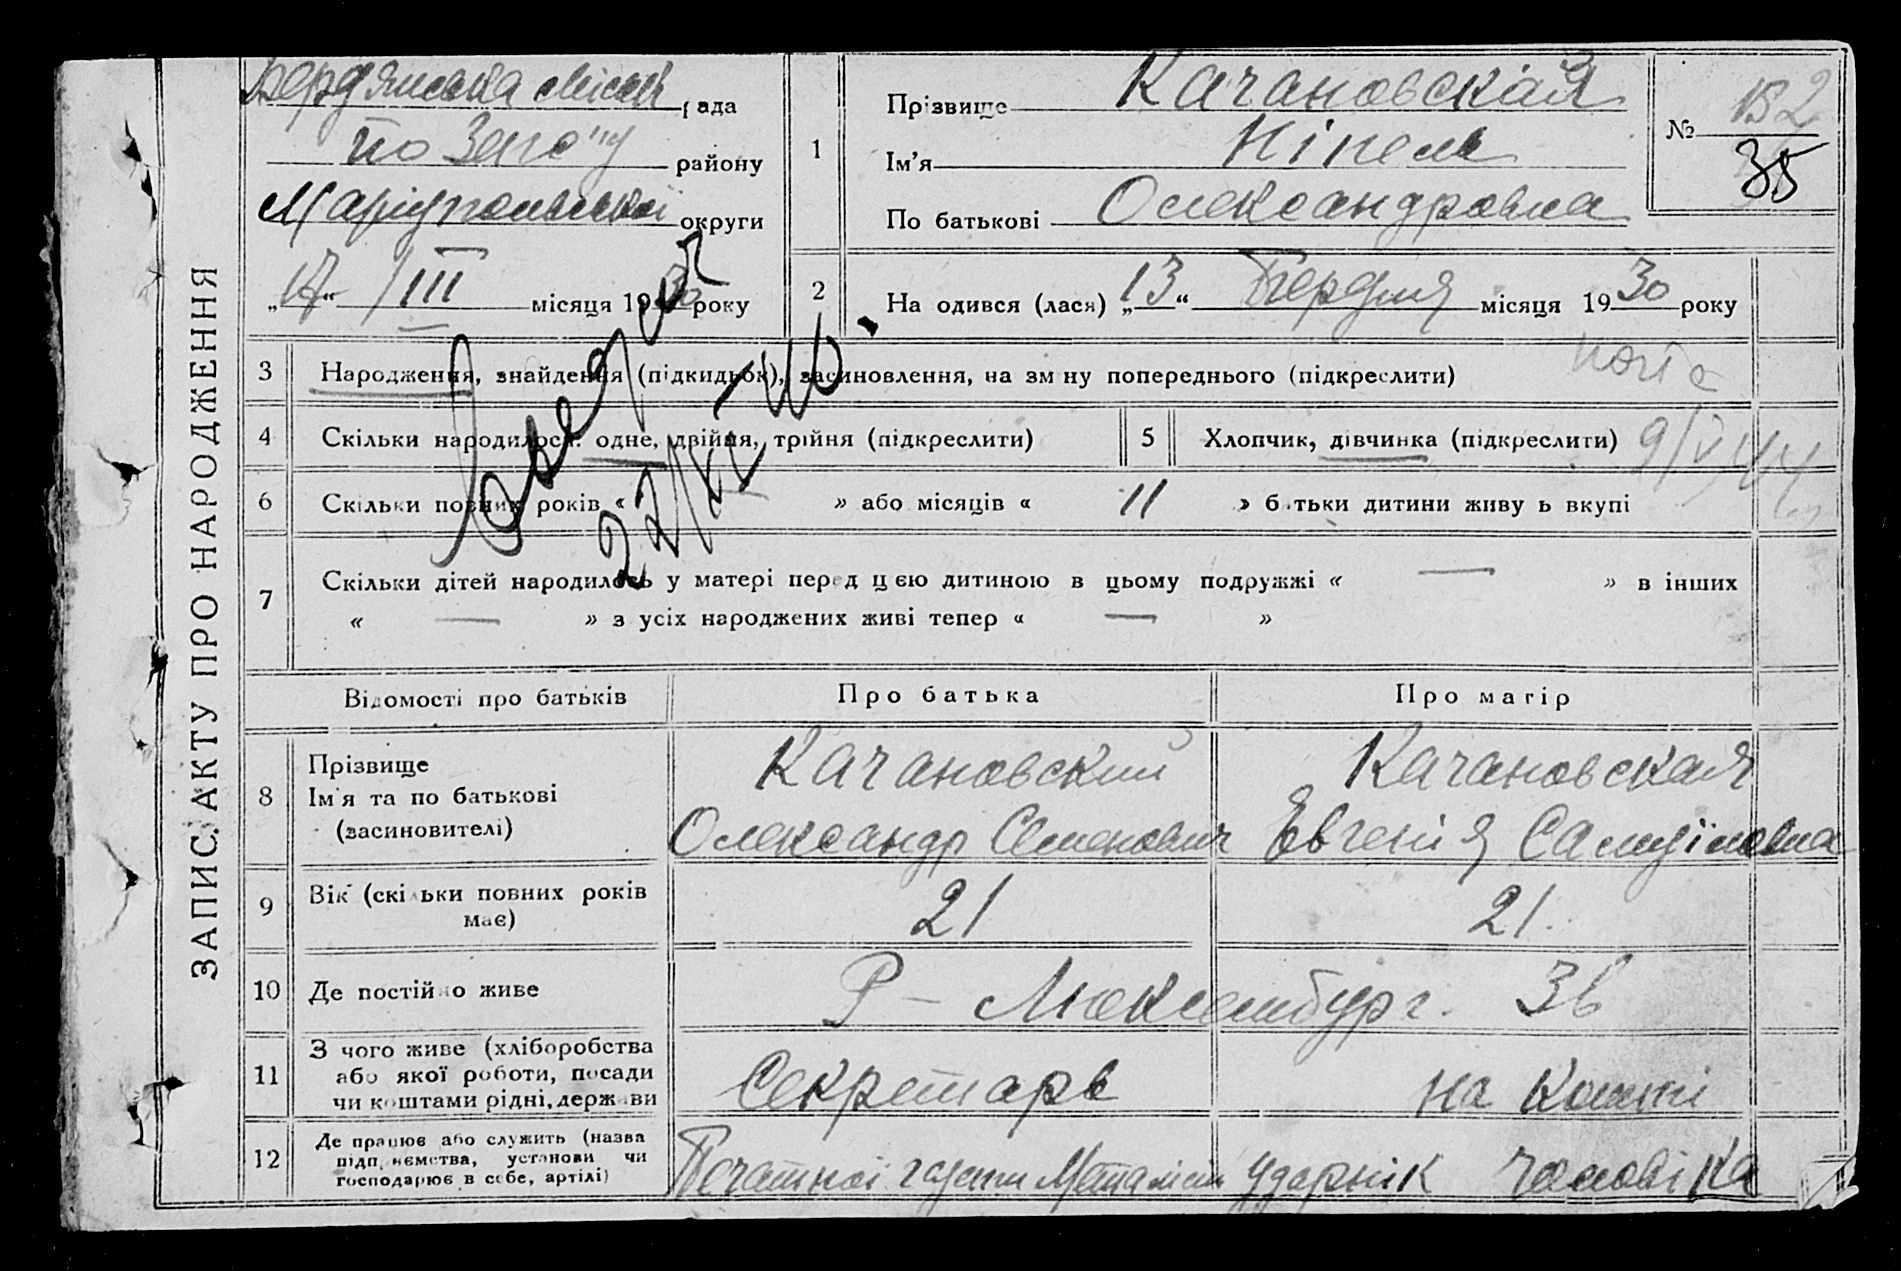 ЗАПИС. АКТУ ПРО НАРОДЖЕННЯ
Бердянська міськ рада
району
Маріупольської округи
„17“ /III місяця 1930 року
1
Прізвище Качановская
Ім’я Нінель
По батькові Олександровна
№ 152
35
2
На одився (лася) „13“ Березня місяця 1930 року
3 Народження, знайдення (підкидьок), засиновлення, на зм ну попереднього (підкреслити)
4 Скільки народилося: одне, двійня, трійня (підкреслити)
5 Хлопчик, дівчинка (підкреслити)
9/V 44
6 Скільки повних років « » або місяців « 11 » батьки дитини живу ь вкупі
22/
7 Скільки дітей народилось у матері перед цією дитиною в цьому подружжі « — » в інших
« — » з усіх народжених живі тепер « — »
Відомості про батьків Про батька Про матір
8 Прізвище
Ім’я та по батькові
(засиновителі)
Качановский
Олександр Семенович
Качановская
Евгенія Самуіловна
9 Вік (скільки повних років
має)
21 21.
10 Де постійно живе Р – Люксембург. 36
11 З чого живе (хліборобства
або якої роботи, посади
чи коштами рідні, держави
Секретарь на кошті
12 Де працює або служить (назва
підприємства, установи чи
господарює в себе, артілі)
ударнік чоловіка